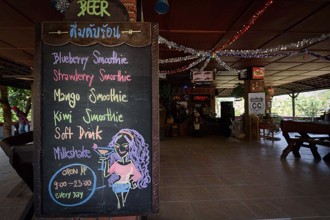 BEER
ดื่มดับร้อน
Blueberry Smoothie
Strawberry Smoothie
Mango Smoothie
Kiwi Smoothie
Soft Drink
Milkshake
OPEN
9.00-23.00
EVERY DAY